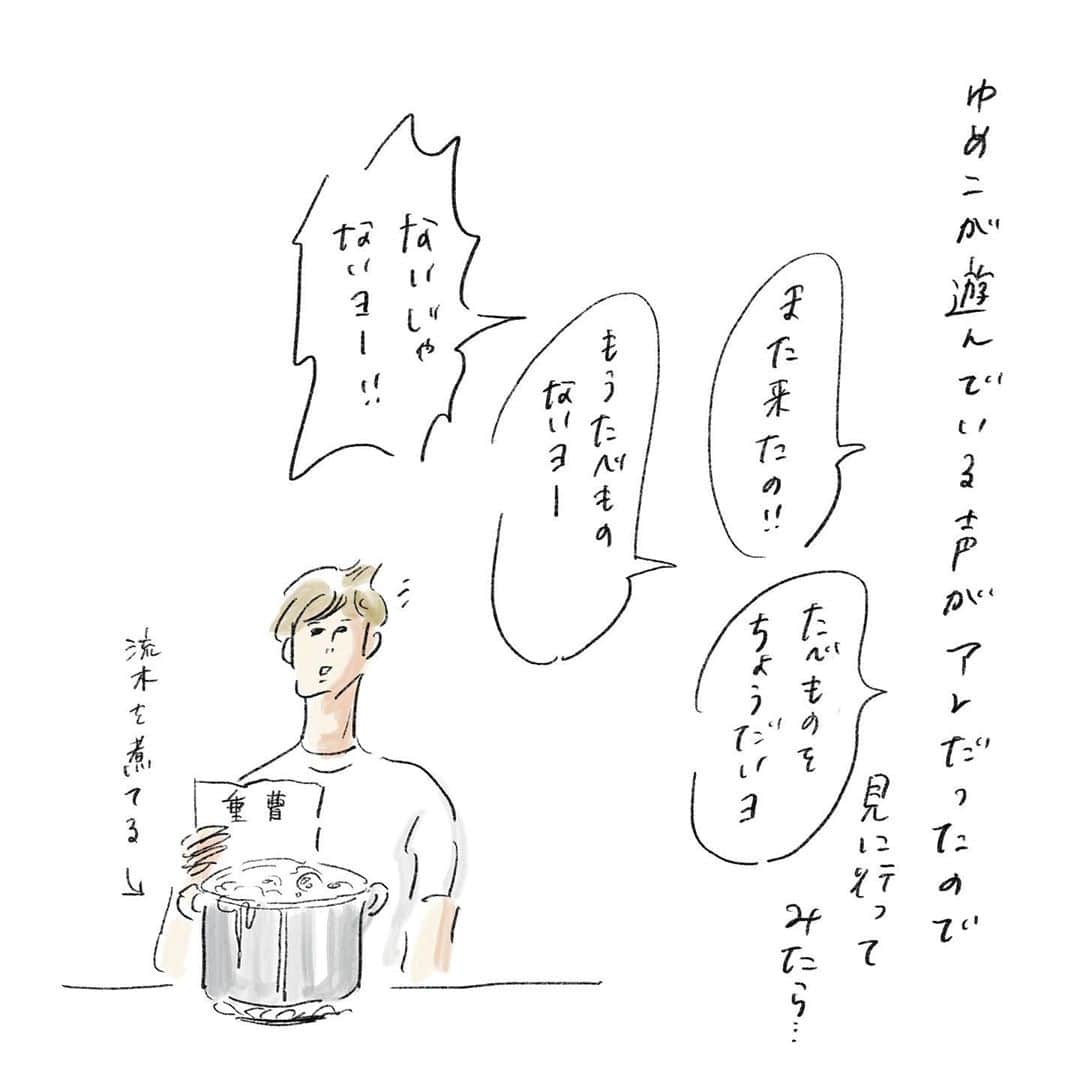 ゆめこが遊んでいる声がアレだったので
見に行って
みたら…
また来たの!!
たべものを
ちょうだいヨ
もうたべもの
ないヨー
ないじゃ
ないヨー!!
流木を煮てる
重曹